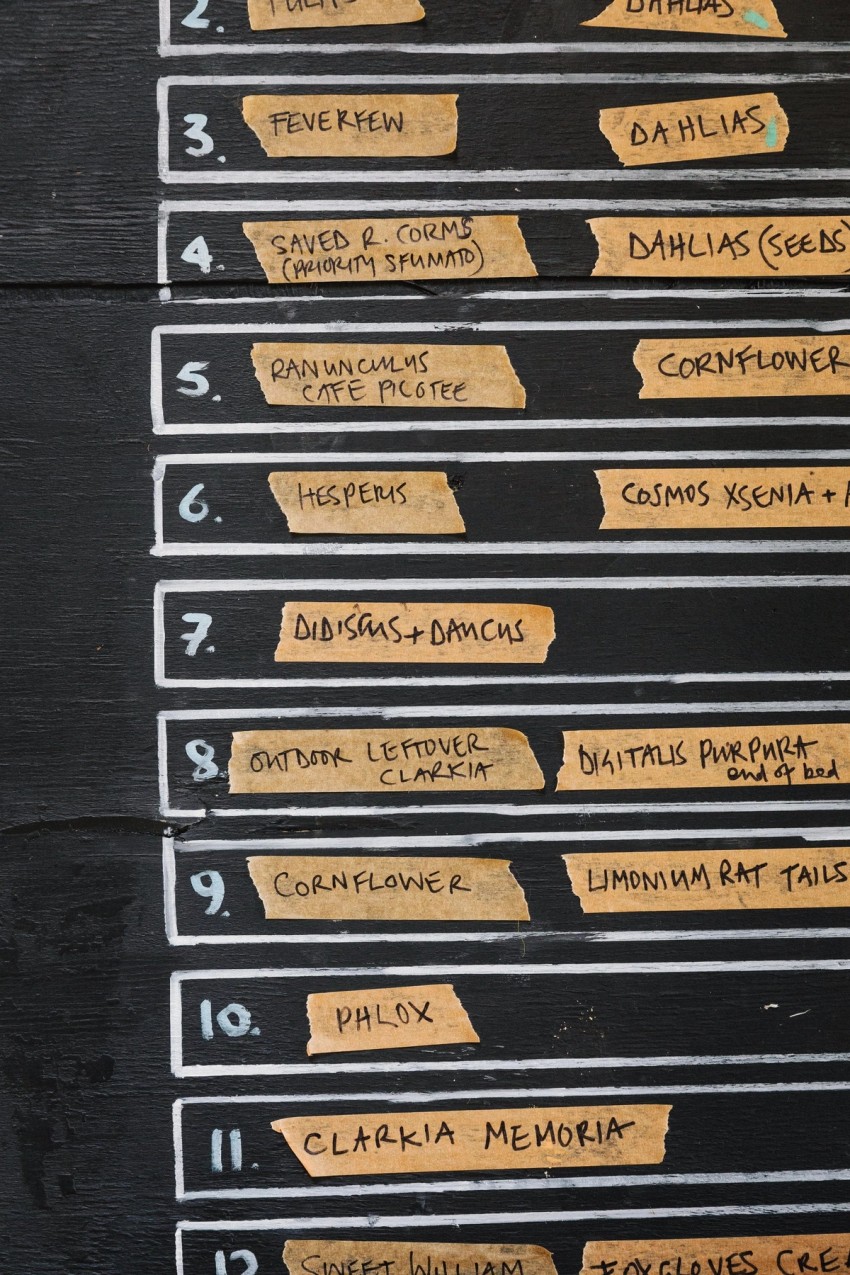 2. TULIPS DAHLIAS
3. FEVERFEW DAHLIAS
4. SAVED R. CORMS DAHLIAS (SEEDS)
(PRIORITY SFUMATO)
5. RANUNCULUS CORNFLOWER
CAFE PICOTEE
6. HESPERIS COSMOS XSENIA +
7. DIDISCUS + DAUCUS
8. OUTDOOR LEFTOVER DIGITALIS PURPURA
CLARKIA end of bed
9. CORNFLOWER LIMONIUM RAT TAILS
10. PHLOX
11. CLARKIA MEMORIA
12 SWEET WILLIAM FOXGLOVES CREA